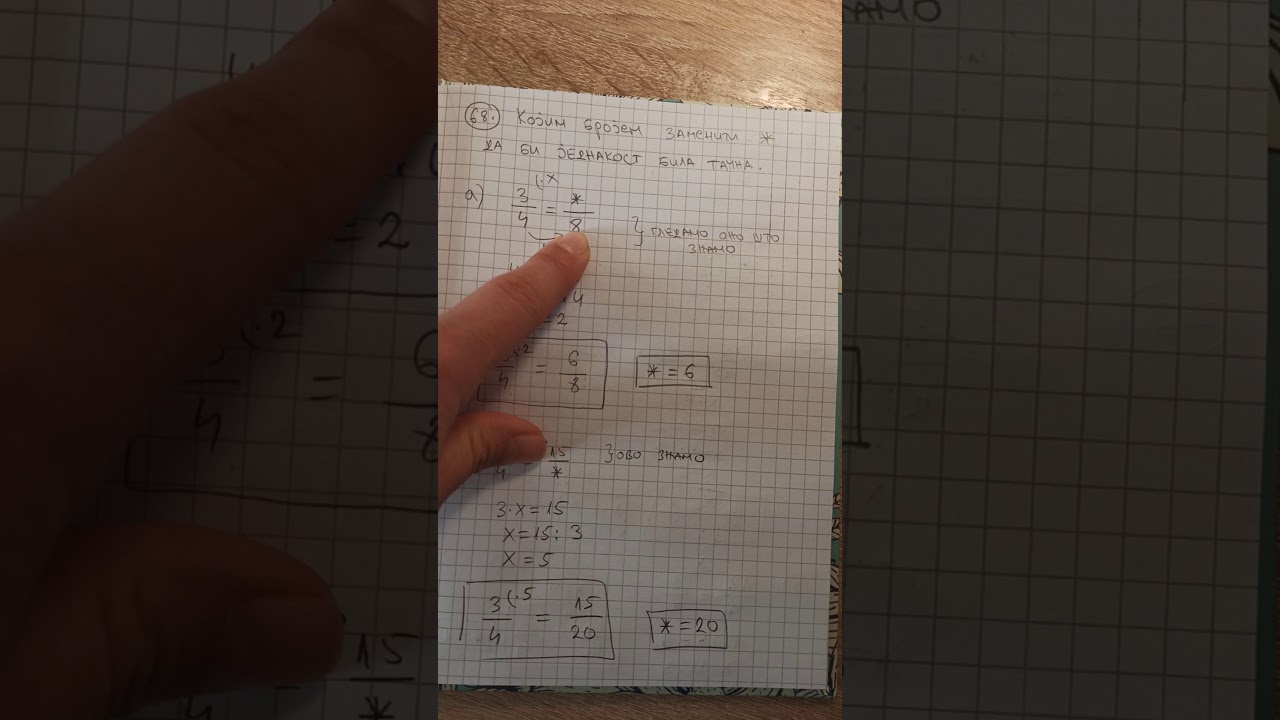 68. Којим бројем заменити *
да би једнакост била тачна.
а) 3/4 (·x = */8 } гледамо оно што
знамо
4
= 2
(·2 /4 = 6/8 * = 6
4 = 15/* } ово знамо
3·x = 15
x = 15 : 3
x = 5
3/4 (·5 = 15/20 * = 20